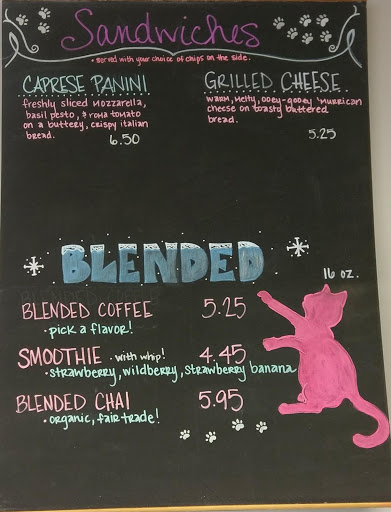 Sandwiches
• served with your choice of chips on the side.
CAPRESE PANINI
freshly sliced mozzarella,
basil pesto, & roma tomato
on a buttery, crispy italian
bread.
6.50
GRILLED CHEESE
warm, melty, ooey-gooey 'murrican
cheese on toasty buttered
bread.
5.25
BLENDED
16 oz.
BLENDED COFFEE 5.25
• pick a flavor!
SMOOTHIE • with whip! 4.45
• strawberry, wildberry, strawberry banana
BLENDED CHAI 5.95
• organic, fair trade!